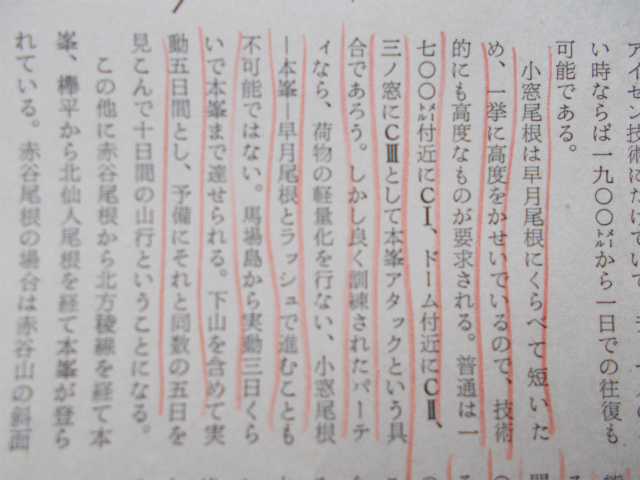 アイゼン技術にたいていて
い時ならば一九〇〇メートルから一日での往復も
可能である。
小窓尾根は早月尾根にくらべて短いた
め、一挙に高度をかせいでいるので、技術
的にも高度なものが要求される。普通は一
七〇〇メートル付近にCⅠ、ドーム付近にCⅡ、
三ノ窓にCⅢとして本峯アタックという具
合であろう。しかし良く訓練されたパーテ
ィなら、荷物の軽量化を行ない、小窓尾根
―本峯―早月尾根とラッシュで進むことも
不可能ではない。馬場島から実動三日くら
いで本峯まで達せられる。下山を含めて実
動五日間とし、予備にそれと同数の五日を
見こんで十日間の山行ということになる。
この他に赤谷尾根から北方稜線を経て本
峯、欅平から北仙人尾根を経て本峯が登ら
れている。赤谷尾根の場合は赤谷山の斜面